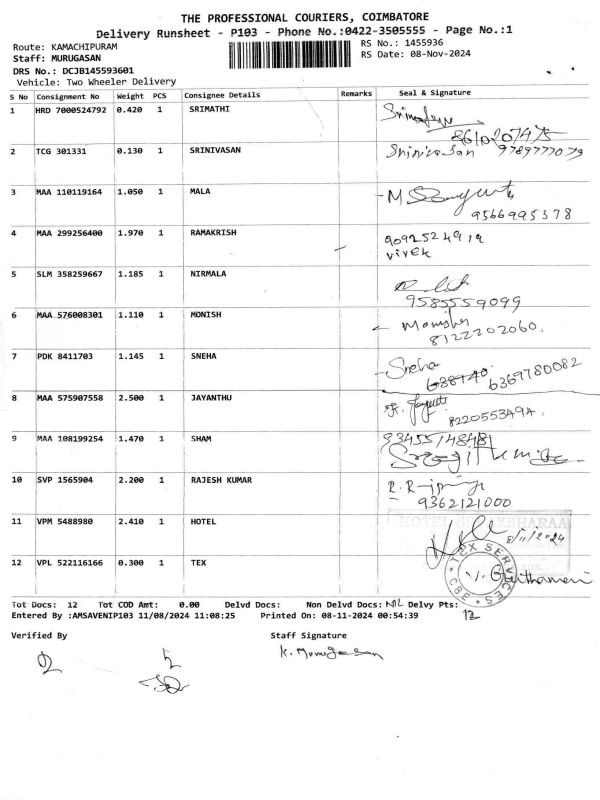 THE PROFESSIONAL COURIERS, COIMBATORE
Delivery Runsheet - P103 - Phone No.:0422-3505555 - Page No.:1
Route: KAMACHIPURAM
RS No.: 1455936
Staff: MURUGASAN
RS Date: 08-Nov-2024
DRS No.: DCJB145593601
Vehicle: Two Wheeler Delivery
S No Consignment No Weight PCS Consignee Details Remarks Seal & Signature
1 HRD 7000524792 0.420 1 SRIMATHI
8610207475
2 TCG 301331 0.130 1 SRINIVASAN Srinivasan 9789777079
3 MAA 110119164 1.050 1 MALA
9566995378
4 MAA 299256400 1.970 1 RAMAKRISH 9092524919
vivek
5 SLM 358259667 1.185 1 NIRMALA
9585559099
6 MAA 576008301 1.110 1 MONISH
8122202060.
7 PDK 8411703 1.145 1 SNEHA Sneha
6369780082
8 MAA 575907558 2.500 1 JAYANTHU
8220553494.
9 MAA 108199254 1.470 1 SHAM 9345514848
10 SVP 1565904 2.200 1 RAJESH KUMAR
9362121000
11 VPM 5488980 2.410 1 HOTEL
8/11/2024
12 VPL 522116166 0.300 1 TEX
TEX SERVICES CBE
Tot Docs: 12 Tot COD Amt: 0.00 Delvd Docs: Non Delvd Docs: NIL Delvy Pts:
12
Entered By :AMSAVENIP103 11/08/2024 11:08:25 Printed On: 08-11-2024 00:54:39
Verified By Staff Signature
K. Murugasan